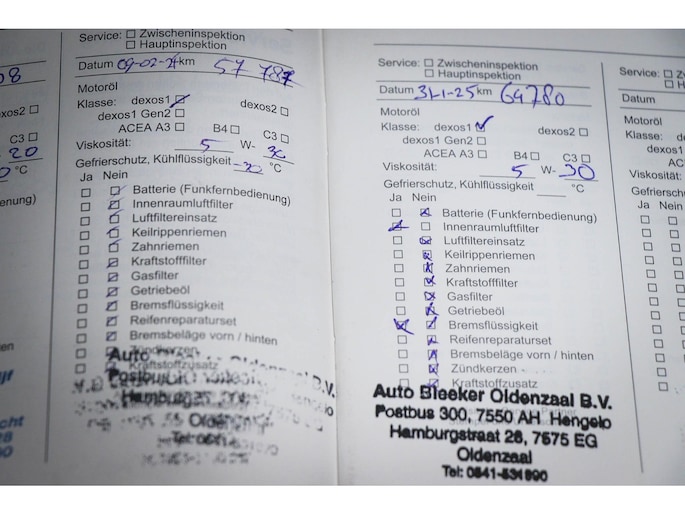 08
dexos2
C3
20
°C
enung)
en
ijf
cht
28
00
Service: Zwischeninspektion
Hauptinspektion
Datum 09-02-24 km 57 787
Motoröl
Klasse: dexos1 dexos2
dexos1 Gen2
ACEA A3 B4 C3
Viskosität: 5 W- 30
Gefrierschutz, Kühlflüssigkeit -30 °C
Ja Nein
Batterie (Funkfernbedienung)
Innenraumluftfilter
Luftfiltereinsatz
Keilrippenriemen
Zahnriemen
Kraftstofffilter
Gasfilter
Getriebeöl
Bremsflüssigkeit
Reifenreparaturset
Bremsbeläge vorn / hinten
Zündkerzen
Kraftstoffzusatz
Auto B.V.
Postbus
Hamburg
Olden
Tel:
Service: Zwischeninspektion
Hauptinspektion
Datum 31-1-25 km 64780
Motoröl
Klasse: dexos1 dexos2
dexos1 Gen2
ACEA A3 B4 C3
Viskosität: 5 W- 30
Gefrierschutz, Kühlflüssigkeit °C
Ja Nein
Batterie (Funkfernbedienung)
Innenraumluftfilter
Luftfiltereinsatz
Keilrippenriemen
Zahnriemen
Kraftstofffilter
Gasfilter
Getriebeöl
Bremsflüssigkeit
Reifenreparaturset
Bremsbeläge vorn / hinten
Zündkerzen
Kraftstoffzusatz
Auto Bleeker Oldenzaal B.V.
Postbus 300, 7550 AH Hengelo
Hamburgstraat 28, 7575 EG
Oldenzaal
Tel: 0541-531990
Service: Zw
Ha
Datum
Motoröl
Klasse: d
dexos1
ACE
Viskosität:
Gefriersch
Ja Nein
Ba
In
Lu
Ke
Za
K
G
G
B
R
B
Z
K